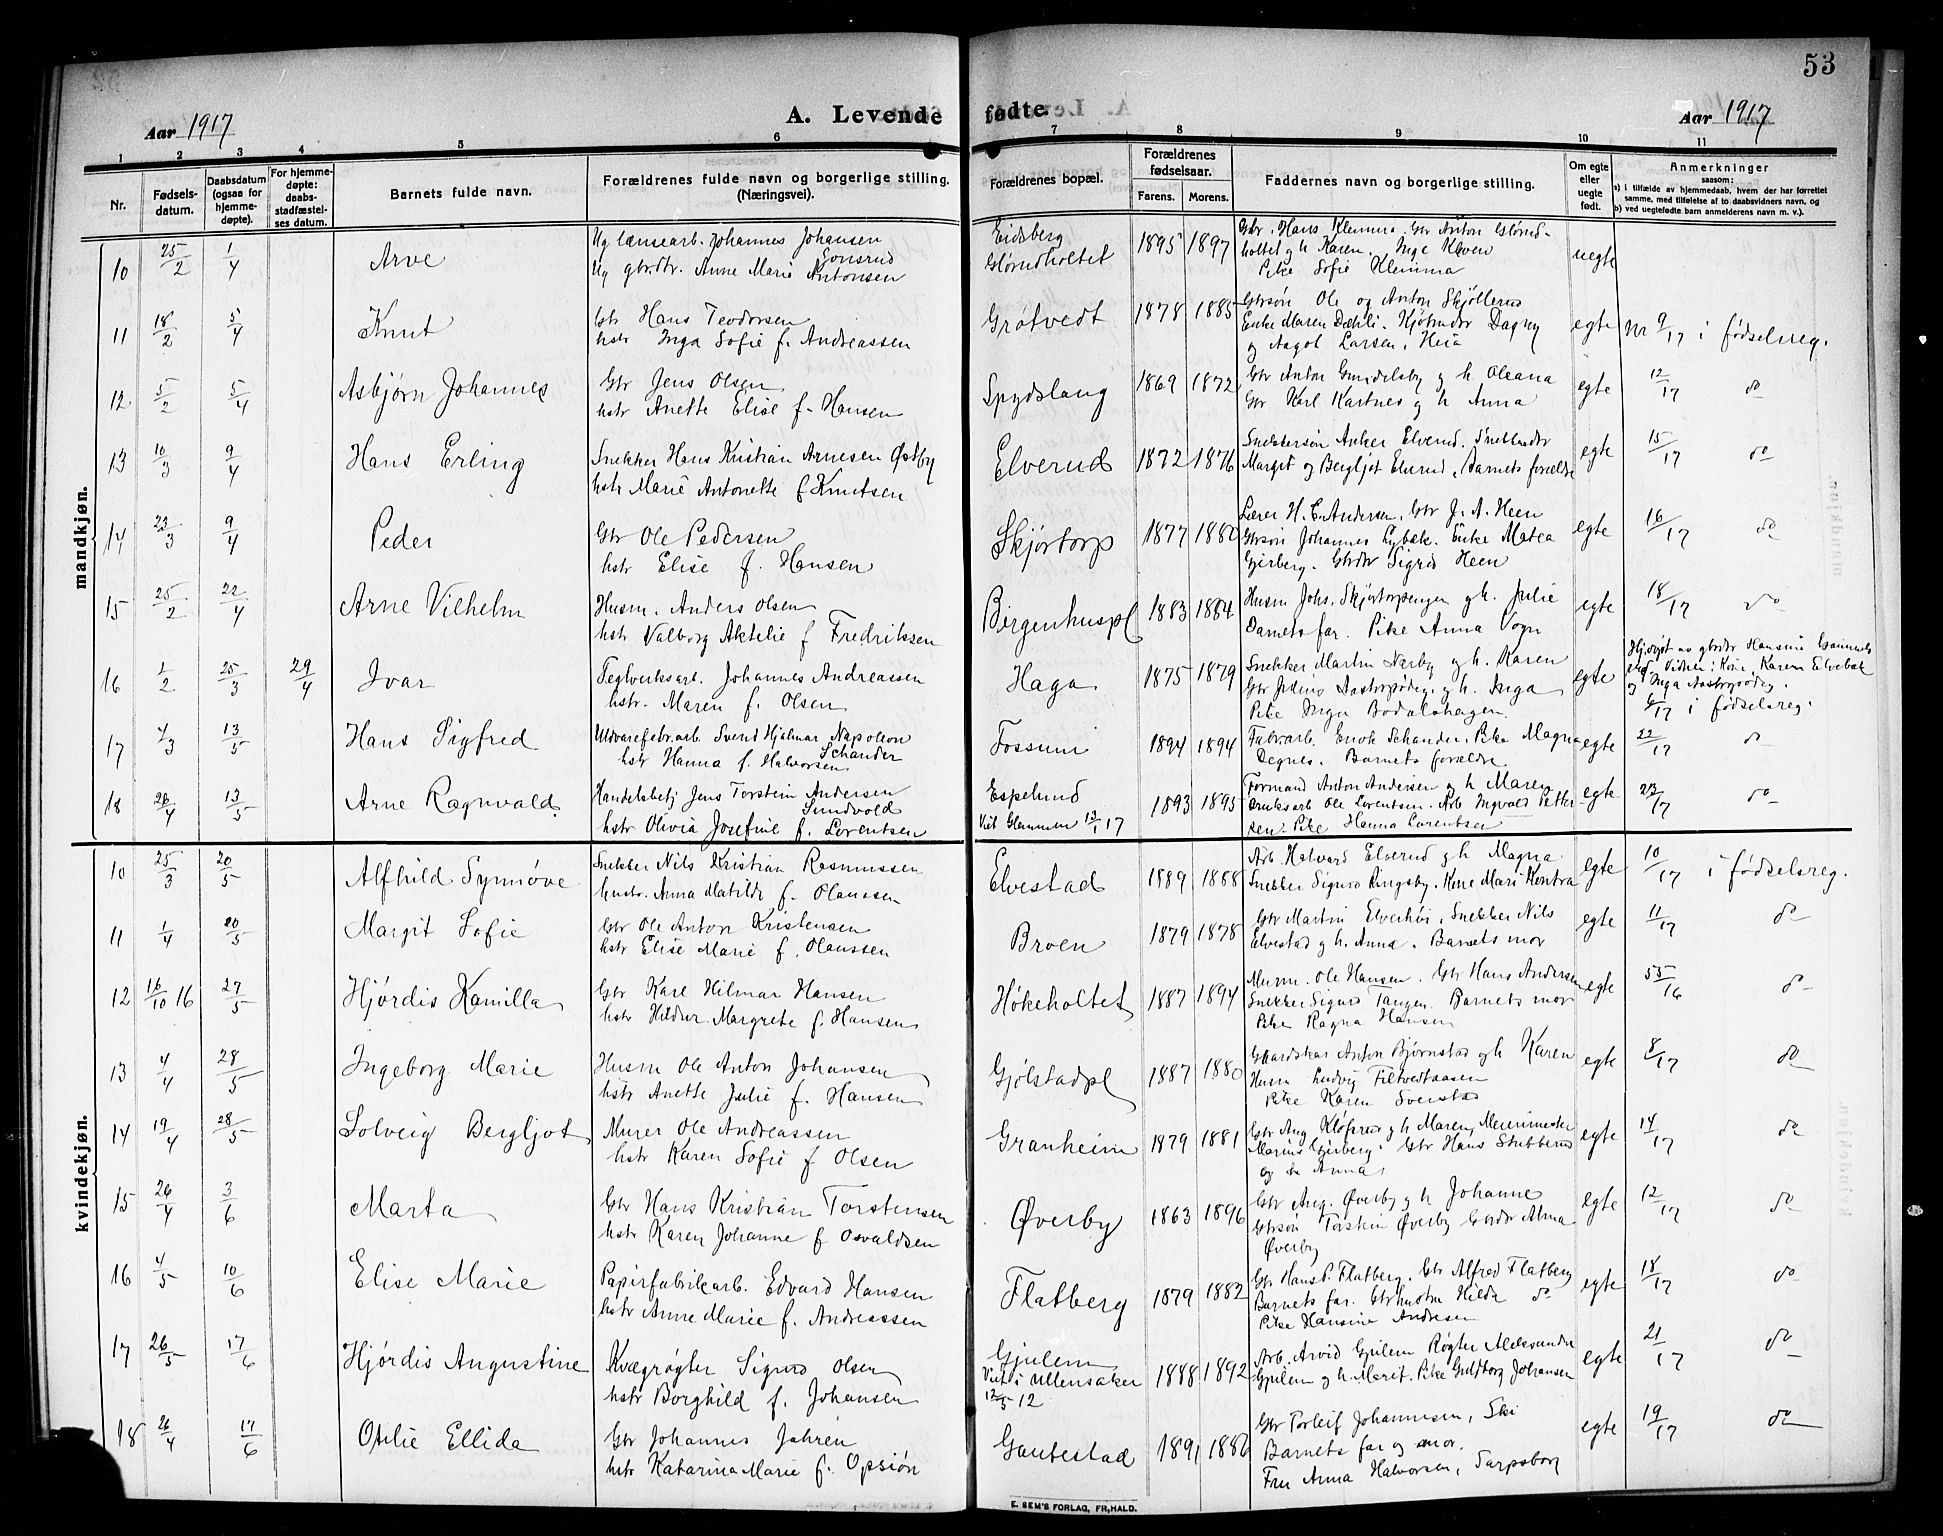 53
Aar 1917
A. Levende fødte.
Aar 1917
1 2 3 4 5 6 7 8 9 10 11
Nr.
Fødsels-
datum.
Daabsdatum
(ogsaa for
hjemme-
døpte).
For hjemme-
døpte:
daabs-
stadfæstel-
ses datum.
Barnets fulde navn.
Forældrenes fulde navn og borgerlige stilling.
(Næringsvei).
Forældrenes bopæl.
Forældrenes
fødselsaar.
Farens. Morens.
Faddernes navn og borgerlige stilling.
Om egte
eller
uegte
født.
Anmerkninger
saasom:
a) i tilfælde av hjemmedaab, hvem der har forrettet
samme, med tilføielse af to daabsvidners navn, og
b) ved uegtefødte barn anmelderens navn m. v.).
mandkjøn.
10 25/2 1/4 Arve
Ug lænsearb. Johannes Johansen
Ug gbr.dtr. Anne Marie Antonsen
Eidsberg
Glørudholtet 1895 1897
Gbr. Hans Klemma. Gbr Anton Glørud-
holtet g h Karen. Inge
Pike Sofie Klemma
uegte
11 18/2 5/4 Knut
Gbr Hans Teodorsen
hstr Inga Sofie f. Andreassen
Grøtvedt 1878 1885
Gbrsøn Ole og Anton Skjøllerud
Enke Maren Dæhli. Dagny
og Aagot Larsen, Heia
egte Nr 9/17 i fødselsreg.
12 5/2 5/4 Asbjørn Johannes
Gbr Jens Olsen
hstr Anette Elise f. Hansen
Spydslaug 1869 1872
Gbr Anton Gundelsby g h. Oleana
Gbr Karl Kartnes g h Anna
egte 12/17 do
13 10/3 9/4 Hans Erling
Snekker Hans Kristian Arnesen Østby
hstr Marie Antonette f Knutsen
Elverud 1872 1876
Snekkersøn Anker Elverud. Snekkerdtr
Margit og Bergljot Elverud, Barnets forældre
egte 15/17 do
14 23/3 9/4 Peder
Gbr Ole Pedersen
hstr Elise f. Hansen
Skjørtorp 1877 1880
Lærer H. C. Andersen, Gbr J. A. Heen
Gbrsøn Johannes Lybæk. Enke Matea
Gjerberg. Gbrdtr Sigrid Heen
egte 16/17 do
15 25/2 22/4 Arne Vilhelm
Husm. Anders Olsen
hstr Valborg Aktelie f Fredriksen
Bergenhuspl 1883 1884
Husm Johs. Skjørtorpengen g h. Julie
Barnets far. Pike Anna Vogn
egte 18/17 do
16 1/2 25/3 29/4 Ivar
Teglverksarb. Johannes Andreassen
hstr. Maren f. Olsen
Haga 1875 1879
Snekker Martin Nærby g h. Karen
Gbr Aastorpødeg. g h. Inga
Pike Inga Bodalshagen
egte
Hjdøpt av gbrdr Hansine
Vidner: Kone Karen Elvebak
og Inga Aastorpødeg.
6/17 i fødselsreg.
17 4/3 13/5 Hans Sigfred
Uldvarefabr.arb. Svend Hjalmar Napoleon
Schander
hstr Hanna f. Halvorsen
Fossum 1894 1894
Fabrarb. Enok Schander, Pike Magna
Degnes. Barnets forældre
egte 22/17 do
18 26/4 13/5 Arne Ragnvald.
Handelsbetj Jens Torstein Andersen
Sundvold
hstr Olivia Josefine f. Lorentsen
Espelund
Viet Glemmen 13/1 17 1893 1895
Formand Anton Andersen g h Maren
Bruksarb Ole Lorentsen. Arb Ingvald Petter
sen. Pike Hanna Lorentsen
egte 27/17 do
kvindekjøn.
10 25/3 20/5 Alfhild Synnøve
Snekker Nils Kristian Rasmussen
hustr. Anna Matilde f. Olaussen
Elvestad 1889 1888
Arb Halvard Elverud g h Magna
Snekker Sigurd Ringsby. Kone Mari
egte 10/17 i fødselsreg.
11 1/4 20/5 Margit Sofie
Gbr Ole Anton Kristensen
hstr Elise Marie f. Olaussen
Broen 1879 1878
Gbr Martin Elverhøi, Snekker Nils
Elvestad g h. Anna. Barnets mor
egte 11/17 do
12 16/10 16 27/5 Hjørdis Kamilla
Gbr Karl Hilmar Hansen
hstr Hildur Margrete f. Hansen
Høkeholtet 1887 1894
Murm. Ole Hansen. Gbr Hans Andersen
Snekker Sigurd Tangen. Barnets mor
Pike Ragna Hansen
egte 55/16 do
13 4/4 28/5 Ingeborg Marie
Husm Ole Anton Johansen
hstr Anette Julie f. Hansen
Gjølstadpl 1887 1880
Gaardskar Anton Bjørnstad g h Karen
Husm Ludvig Filtvedtaasen
Pike Karen Sverstad
egte 8/17 do
14 19/4 28/5 Solveig Bergljot
Murer Ole Andreassen
hstr Karen Sofie f Olsen
Granheim 1879 1881
Gbr Aug. Kløfrud g h Maren, Meierimester
Marius Gjerberg. Gbr Hans Stubberud
og Anna
egte 14/17 do
15 26/4 3/6 Marta
Gbr Hans Kristian Torstensen
hstr Karen Johanne f Osvaldsen
Øverby 1863 1896
Gbr Aug. Øverby g h Johanne
Gbrsøn Torstein Øverby Gbrdtr Alma
Øverby
egte 12/17 do
16 4/5 10/6 Elise Marie
Papirfabrikarb. Edvard Hansen
hstr Anne Marie f. Andreassen
Flatberg 1879 1882
Gbr Hans P. Flatberg. Gbr Alfred Flatberg
Barnets far. Gbrhustru Hilda do
Pike Hansine Andresen
egte 18/17 do
17 26/5 17/6 Hjørdis Augustine
Kvægrøgter Sigurd Olsen
hstr Borghild f. Johansen
Gjulem
Viet i Ullensaker
12/5 12 1888 1892
Arb. Arvid Gjulem Røgter Aleksander
Gjulem g h. Marit. Pike Guldborg Johansen
egte 21/17 do
18 26/4 17/6 Otelie Ellida
Gbr Johannes Jahren
hstr Katarina Marie f. Opsiøn
Gautestad 1891 1886
Gbr Torleif Johannesen, Ski
Barnets far og mor.
Fru Anna Halvorsen, Sarpsborg
egte 19/17 do
E. SEM'S FORLAG, FR,HALD.